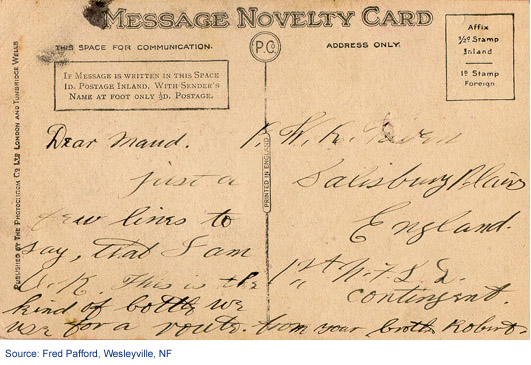 MESSAGE NOVELTY CARD
THIS SPACE FOR COMMUNICATION.
P.C.
ADDRESS ONLY.
Affix
½d Stamp
Inland
1d Stamp
Foreign.
IF MESSAGE IS WRITTEN IN THIS SPACE
1D. POSTAGE INLAND. WITH SENDER'S
NAME AT FOOT ONLY ½D. POSTAGE.
PUBLISHED BY THE PHOTOCHROM CO LTD LONDON AND TUNBRIDGE WELLS
PRINTED IN ENGLAND
Dear Maud.
just a
few lines to
say, that I am
O.K. This is the
kind of bottle we
use for a route. from your brother Robert.
Salisbury Plain
England.
1st N.F.L.D.
contingent.
Source: Fred Pafford, Wesleyville, NF